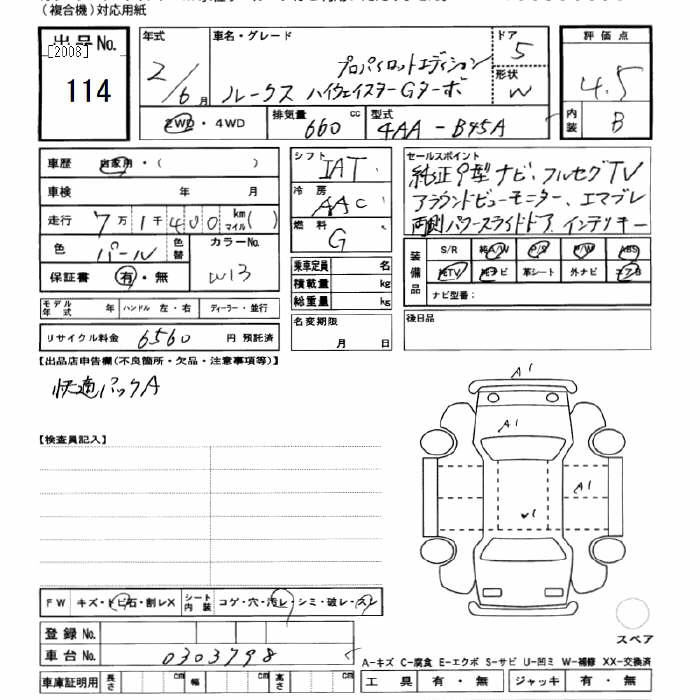 （複合機）対応用紙
出品No.
[2008]
114
年式
2/6月
車名・グレード
プロパイロットエディション
ルークス ハイウェイスターGターボ
ドア
5
形状
W
2WD・4WD
排気量 660 cc
型式 4AA-B45A
評価点
4.5
内装
B
車歴 自家用・（ ）
車検 年 月
走行 7万1千400 km マイル( )
色 パール
色替
カラーNo.
W13
保証書 有・無
シフト IAT
冷房 AAC
燃料 G
乗車定員 名
積載量 kg
総重量 kg
セールスポイント
純正9型ナビ、フルセグTV
アラウンドビューモニター、エマブレ
両側パワースライドドア、インテリキー
装備品
S/R 純A/W P/S P/W ABS
純TV 純ナビ 革シート 外ナビ エアB
ナビ型番：
モデル年式 年 ハンドル 左・右 ディーラー・並行
リサイクル料金 6560 円 預託済
名変期限
月 日
後日品
【出品店申告欄(不良箇所・欠品・注意事項等)】
快適パックA
【検査員記入】
A1
A1
A1
V1
スペア
FW キズ・トビ石・割レX
シート内装 コゲ・穴・汚レ・シミ・破レ・スレ
登録No.
車台No. 0303798
車庫証明用 長さ cm 幅 cm 高さ cm
A-キズ C-腐食 E-エクボ S-サビ U-凹ミ W-補修 XX-交換済
工具 有・無 ジャッキ 有・無